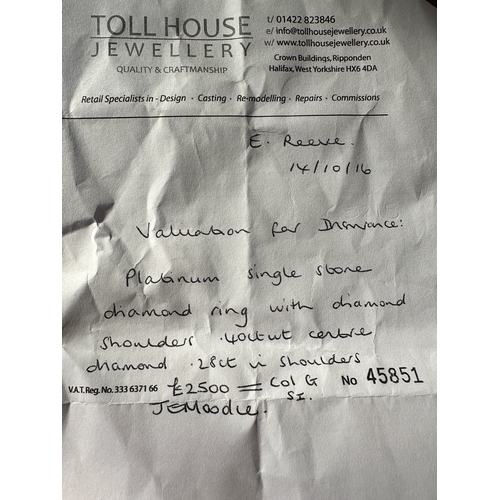 TOLL HOUSE
JEWELLERY
QUALITY & CRAFTMANSHIP
t/ 01422 823846
e/ info@tollhousejewellery.co.uk
w/ www.tollhousejewellery.co.uk
Crown Buildings, Ripponden
Halifax, West Yorkshire HX6 4DA
Retail Specialists in - Design · Casting · Re-modelling · Repairs · Commissions
E. Reeve.
14/10/16
Valuation for Insurance:
Platinum single stone
diamond ring with diamond
shoulders .40ct wt centre
diamond .28ct in shoulders
V.A.T. Reg. No. 333 6371 66 £2500 = Col G No 45851
S.I.
JEMoodie.